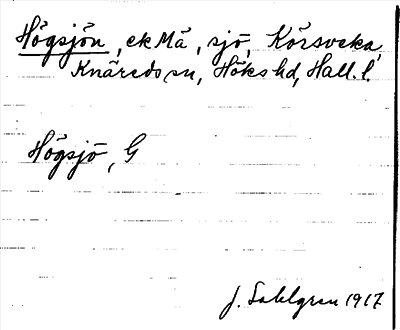 Högsjön, ek Må, sjö, Körsveka,
Knäreds sn, Höks hd, Hall. l.
Högsjö, G
J. Sahlgren 1917